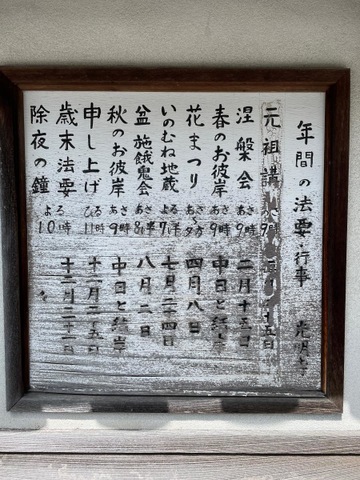 年間の法要・行事
元祖講 9時 十五日
涅槃会 あさ9時 二月十五日
春のお彼岸 あさ9時 中日と
花まつり あさ〜夕方 四月八日
いのむね地蔵 よる7半 七月二十四日
盆施餓鬼会 あさ8半 八月二日
秋のお彼岸 あさ9時 中日と結岸
申し上げ ひる11時 十二月二十五日
歳末法要
除夜の鐘 よる10時 十二月三十一日